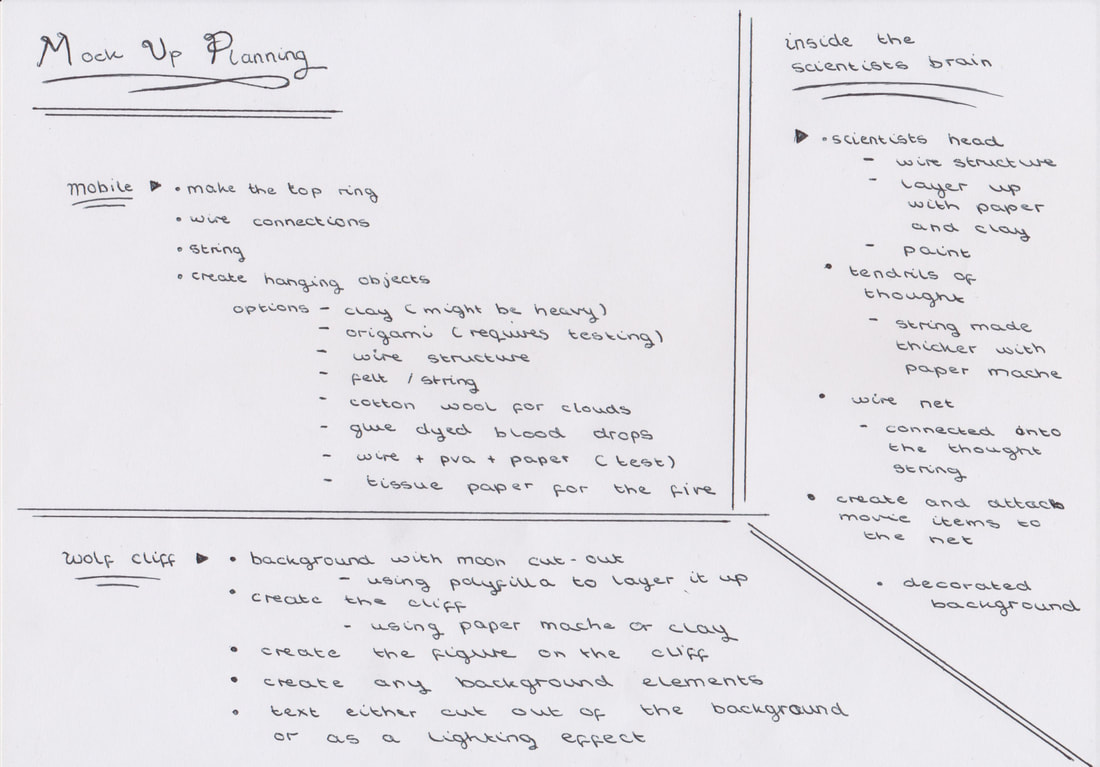 Mock Up Planning
mobile ▶ • make the top ring
• wire connections
• string
• create hanging objects
options - clay (might be heavy)
- origami (requires testing)
- wire structure
- felt / string
- cotton wool for clouds
- glue dyed blood drops
- wire + pva + paper (test)
- tissue paper for the fire
inside the
scientists brain
▶ • scientists head
- wire structure
- layer up
with paper
and clay
- paint
• tendrils of
thought
- string made
thicker with
paper mache
• wire net
- connected onto
the thought
string
• create and attach
movie items to
the net
• decorated
background
wolf cliff ▶ • background with moon cut-out
- using polyfilla to layer it up
• create the cliff
- using paper mache or clay
• create the figure on the cliff
• create any background elements
• text either cut out of the background
or as a lighting effect